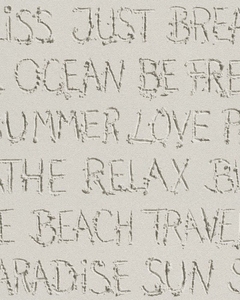 iSS JUST BREA
OCEAN BE FRE
UMMER LOVE P
THE RELAX B
E BEACH TRAVE
ARADiSE SUN S